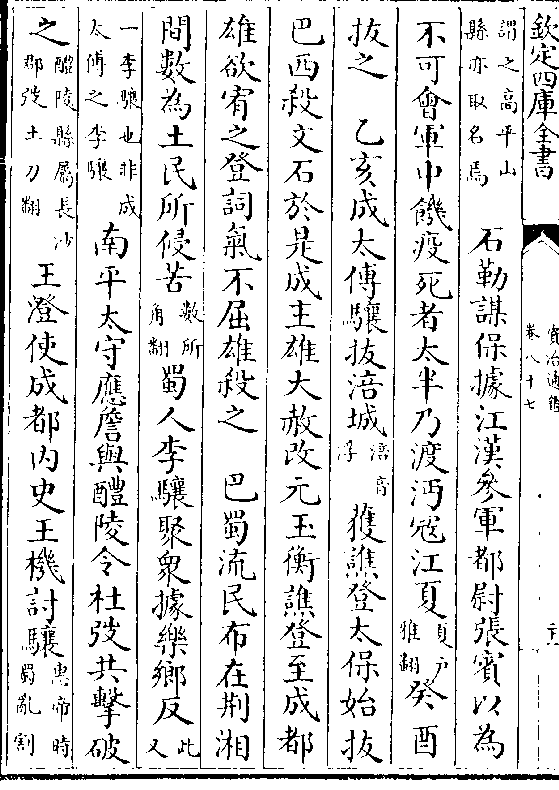 欽定四庫全書
資治通鑑
卷八十七
謂之高平山
縣亦取名焉
石勒謀保據江漢參軍都尉張賓以為
不可會軍中饑疫死者太半乃渡沔寇江夏
夏戶
雅翻
癸酉
拔之 乙亥成太傅驤拔涪城
涪音
浮
獲譙登太保始拔
巴西殺文石於是成主雄大赦改元玉衡譙登至成都
雄欲宥之登詞氣不屈雄殺之 巴蜀流民布在荆湘
間數為土民所侵苦
數所
角翻
蜀人李驤聚衆據樂鄉反
此又
一李驤也非成
太傅之李驤
南平太守應詹與醴陵令杜弢共擊破
之
醴陵縣屬長沙
郡弢土刀翻
王澄使成都内史王機討驤
惠帝時
蜀亂割